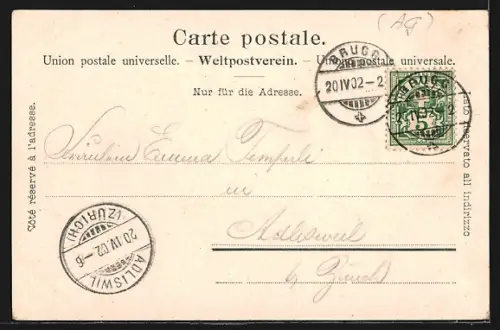 (Ag)
Carte postale.
Union postale universelle. – Weltpostverein. – Union postale universale.
Nur für die Adresse.
BRUGG
20 IV 02 - 2
BRUGG
20 IV 02 - 2
5
Côté réservé à l'adresse.
Lato riservato all indirizzo
Fräulein Emma Temperli
in
Adlisweil
b/ Zürich
(ZÜRICH)
20 IV 02 - 6
ADLISWIL